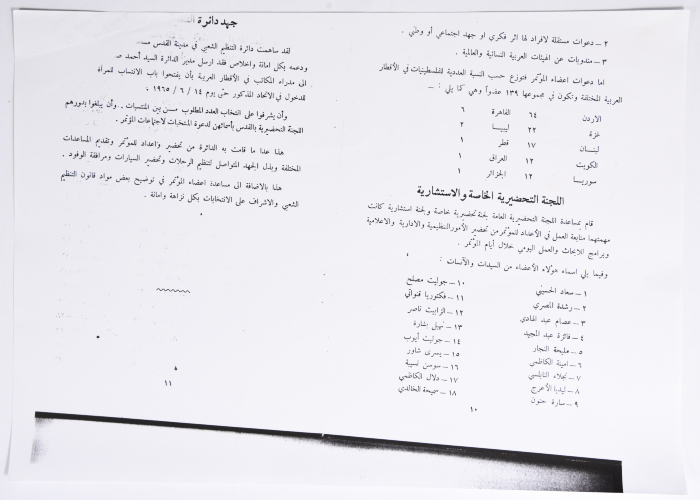 ٢ – دعوات مستقلة لافراد لها اثر فكري او جهد اجتماعي أو وطني .
٣ – مندوبات عن الهيئات العربية النسائية والعالمية .
اما دعوات اعضاء المؤتمر فتوزع حسب النسبة العددية للفلسطينيات في الأقطار
العربية المختلفة وتكون في مجموعها ١٣٩ عضواً وهي كما يلي : –
الاردن ٦٤ القاهرة ٦
غزة ٢٢ ليبيا ٢
لبنان ١٧ قطر ١
الكويت ١٢ العراق ١
سوريا ١٢ الجزائر ١
اللجنة التحضيرية الخاصة والاستشارية
قام بمساعدة اللجنة التحضيرية العامة لجنة تحضيرية خاصة ولجنة استشارية كانت
مهمتهما متابعة العمل في الأعداد للمؤتمر من تحضير الأمور التنظيمية والادارية والاعلامية
وبرامج للابحاث والعمل اليومي خلال أيام المؤتمر .
وفيما يلي اسماء هؤلاء الأعضاء من السيدات والآنسات :
١ – سعاد الحسيني
٢ – رشدة المصري
٣ – عصام عبد الهادي
٤ – فائزة عبد المجيد
٥ – مليحة النجار
٦ – امينة الكاظمي
٧ – نجلاء النابلسي
٨ – ليديا الأعرج
٩ – سارة حنون
١٠ – جوليت مصلح
١١ – فكتوريا قنواتي
١٢ – الزابيت ناصر
١٣ – نبيل بشارة
١٤ – جوليت أيوب
١٥ – يسرى شاور
١٦ – سوسن نسيبة
١٧ – دلال الكاظمي
١٨ – سميحة الخالدي
١٠
جهد دائرة
لقد ساهمت دائرة التنظيم الشعبي في مدينة القدس
ودعمه بكل امانة واخلاص فقد ارسل مدير الدائرة السيد أحمد
الى مدراء المكاتب في الأقطار العربية بأن يفتحوا باب الانتساب للمرأة
للدخول في الاتحاد المذكور حتى يوم ١٤ / ٦ / ١٩٦٥ ،
وأن يشرفوا على انتخاب العدد المطلوب من بين المنتسبات . وأن يبلغوا بدورهم
اللجنة التحضيرية بالقدس بأسمائهن لدعوة المنتخبات لاجتماعات المؤتمر .
هذا عدا ما قامت به الدائرة من تحضير واعداد للمؤتمر وتقديم المساعدات
المختلفة وبذل الجهد المتواصل لتنظيم الرحلات وتحضير السيارات ومرافقة الوفود .
هذا بالاضافة الى مساعدة اعضاء المؤتمر في توضيح بعض مواد قانون التنظيم
الشعبي والاشراف على الانتخابات بكل نزاهة وامانة .
١١